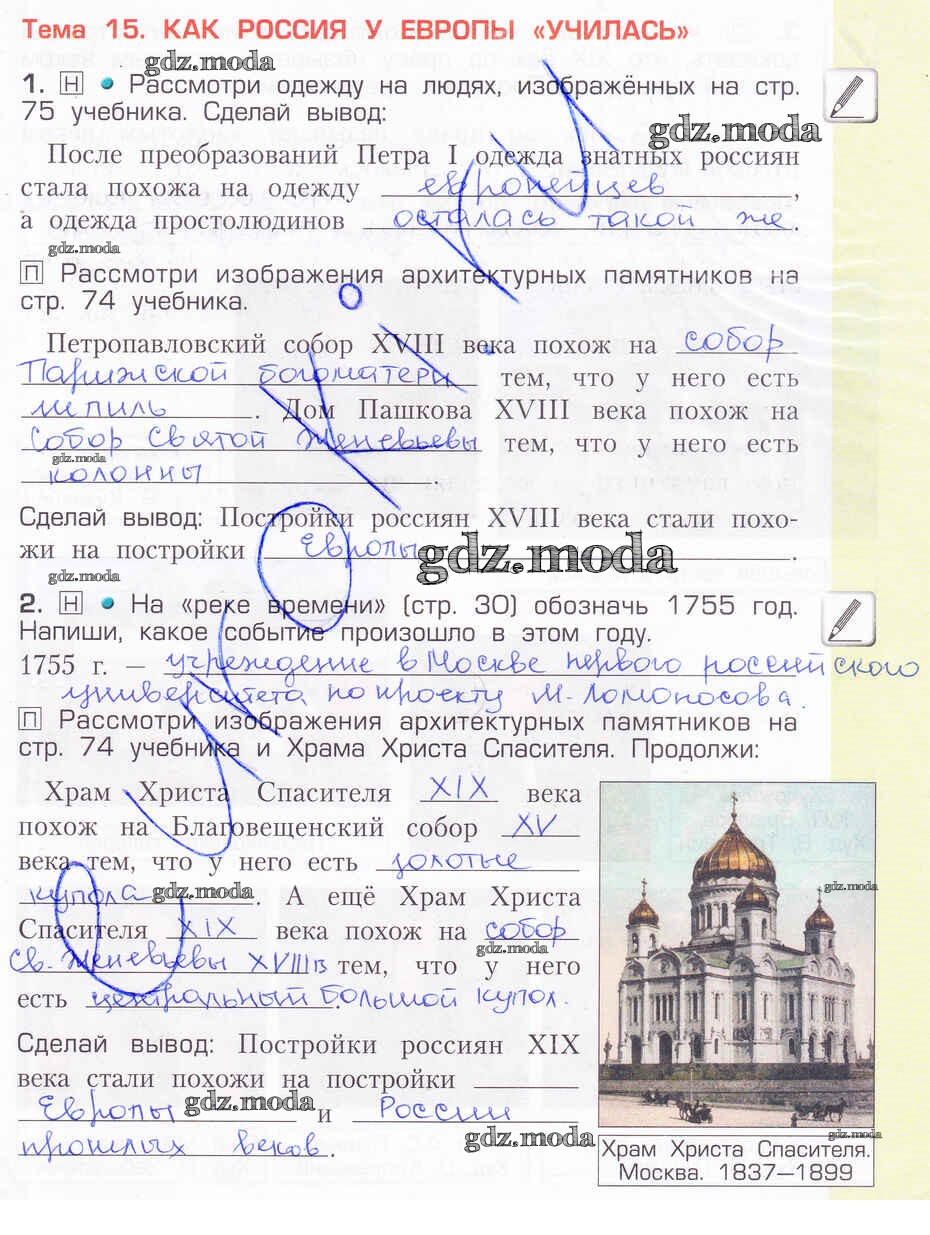 Тема 15. КАК РОССИЯ У ЕВРОПЫ «УЧИЛАСЬ»
gdz.moda
1. Н • Рассмотри одежду на людях, изображённых на стр.
75 учебника. Сделай вывод:
gdz.moda
После преобразований Петра I одежда знатных россиян
стала похожа на одежду европейцев,
а одежда простолюдинов осталась такой же.
gdz.moda
П Рассмотри изображения архитектурных памятников на
стр. 74 учебника.
Петропавловский собор XVIII века похож на собор
Парижской богоматери тем, что у него есть
шпиль. Дом Пашкова XVIII века похож на
собор Святой Женевьевы тем, что у него есть
gdz.moda
колонны.
Сделай вывод: Постройки россиян XVIII века стали похо-
жи на постройки Европы.
gdz.moda
gdz.moda
2. Н • На «реке времени» (стр. 30) обозначь 1755 год.
Напиши, какое событие произошло в этом году.
1755 г. — учреждение в Москве первого российского
университета по проекту М. Ломоносова.
П Рассмотри изображения архитектурных памятников на
стр. 74 учебника и Храма Христа Спасителя. Продолжи:
Храм Христа Спасителя XIX века
похож на Благовещенский собор XV
века тем, что у него есть золотые
купола. А ещё Храм Христа
gdz.moda
gdz.moda
Спасителя XIX века похож на собор
gdz.moda
Св. Женевьевы XVIII в тем, что у него
есть центральный большой купол.
Сделай вывод: Постройки россиян XIX
века стали похожи на постройки
Европы и России
gdz.moda
прошлых веков.
gdz.moda
gdz.moda
Храм Христа Спасителя.
Москва. 1837—1899
уроки.ru